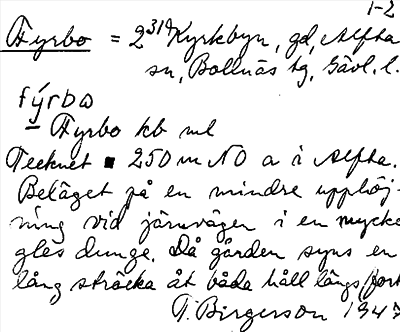 1-2
Fyrbo = 2³¹⁹ Kyrkbyn, gd, Alfta
sn, Bollnäs tg, Gävl. l.
fy̌rbω
– Fyrbo kb ml
Tecknet ▪ 250 m NO a i Alfta.
Beläget på en mindre upphöj-
ning vid järnvägen i en mycke
gles dunge. Då gården syns en
lång sträcka åt båda håll längs
T. Birgerson 1947